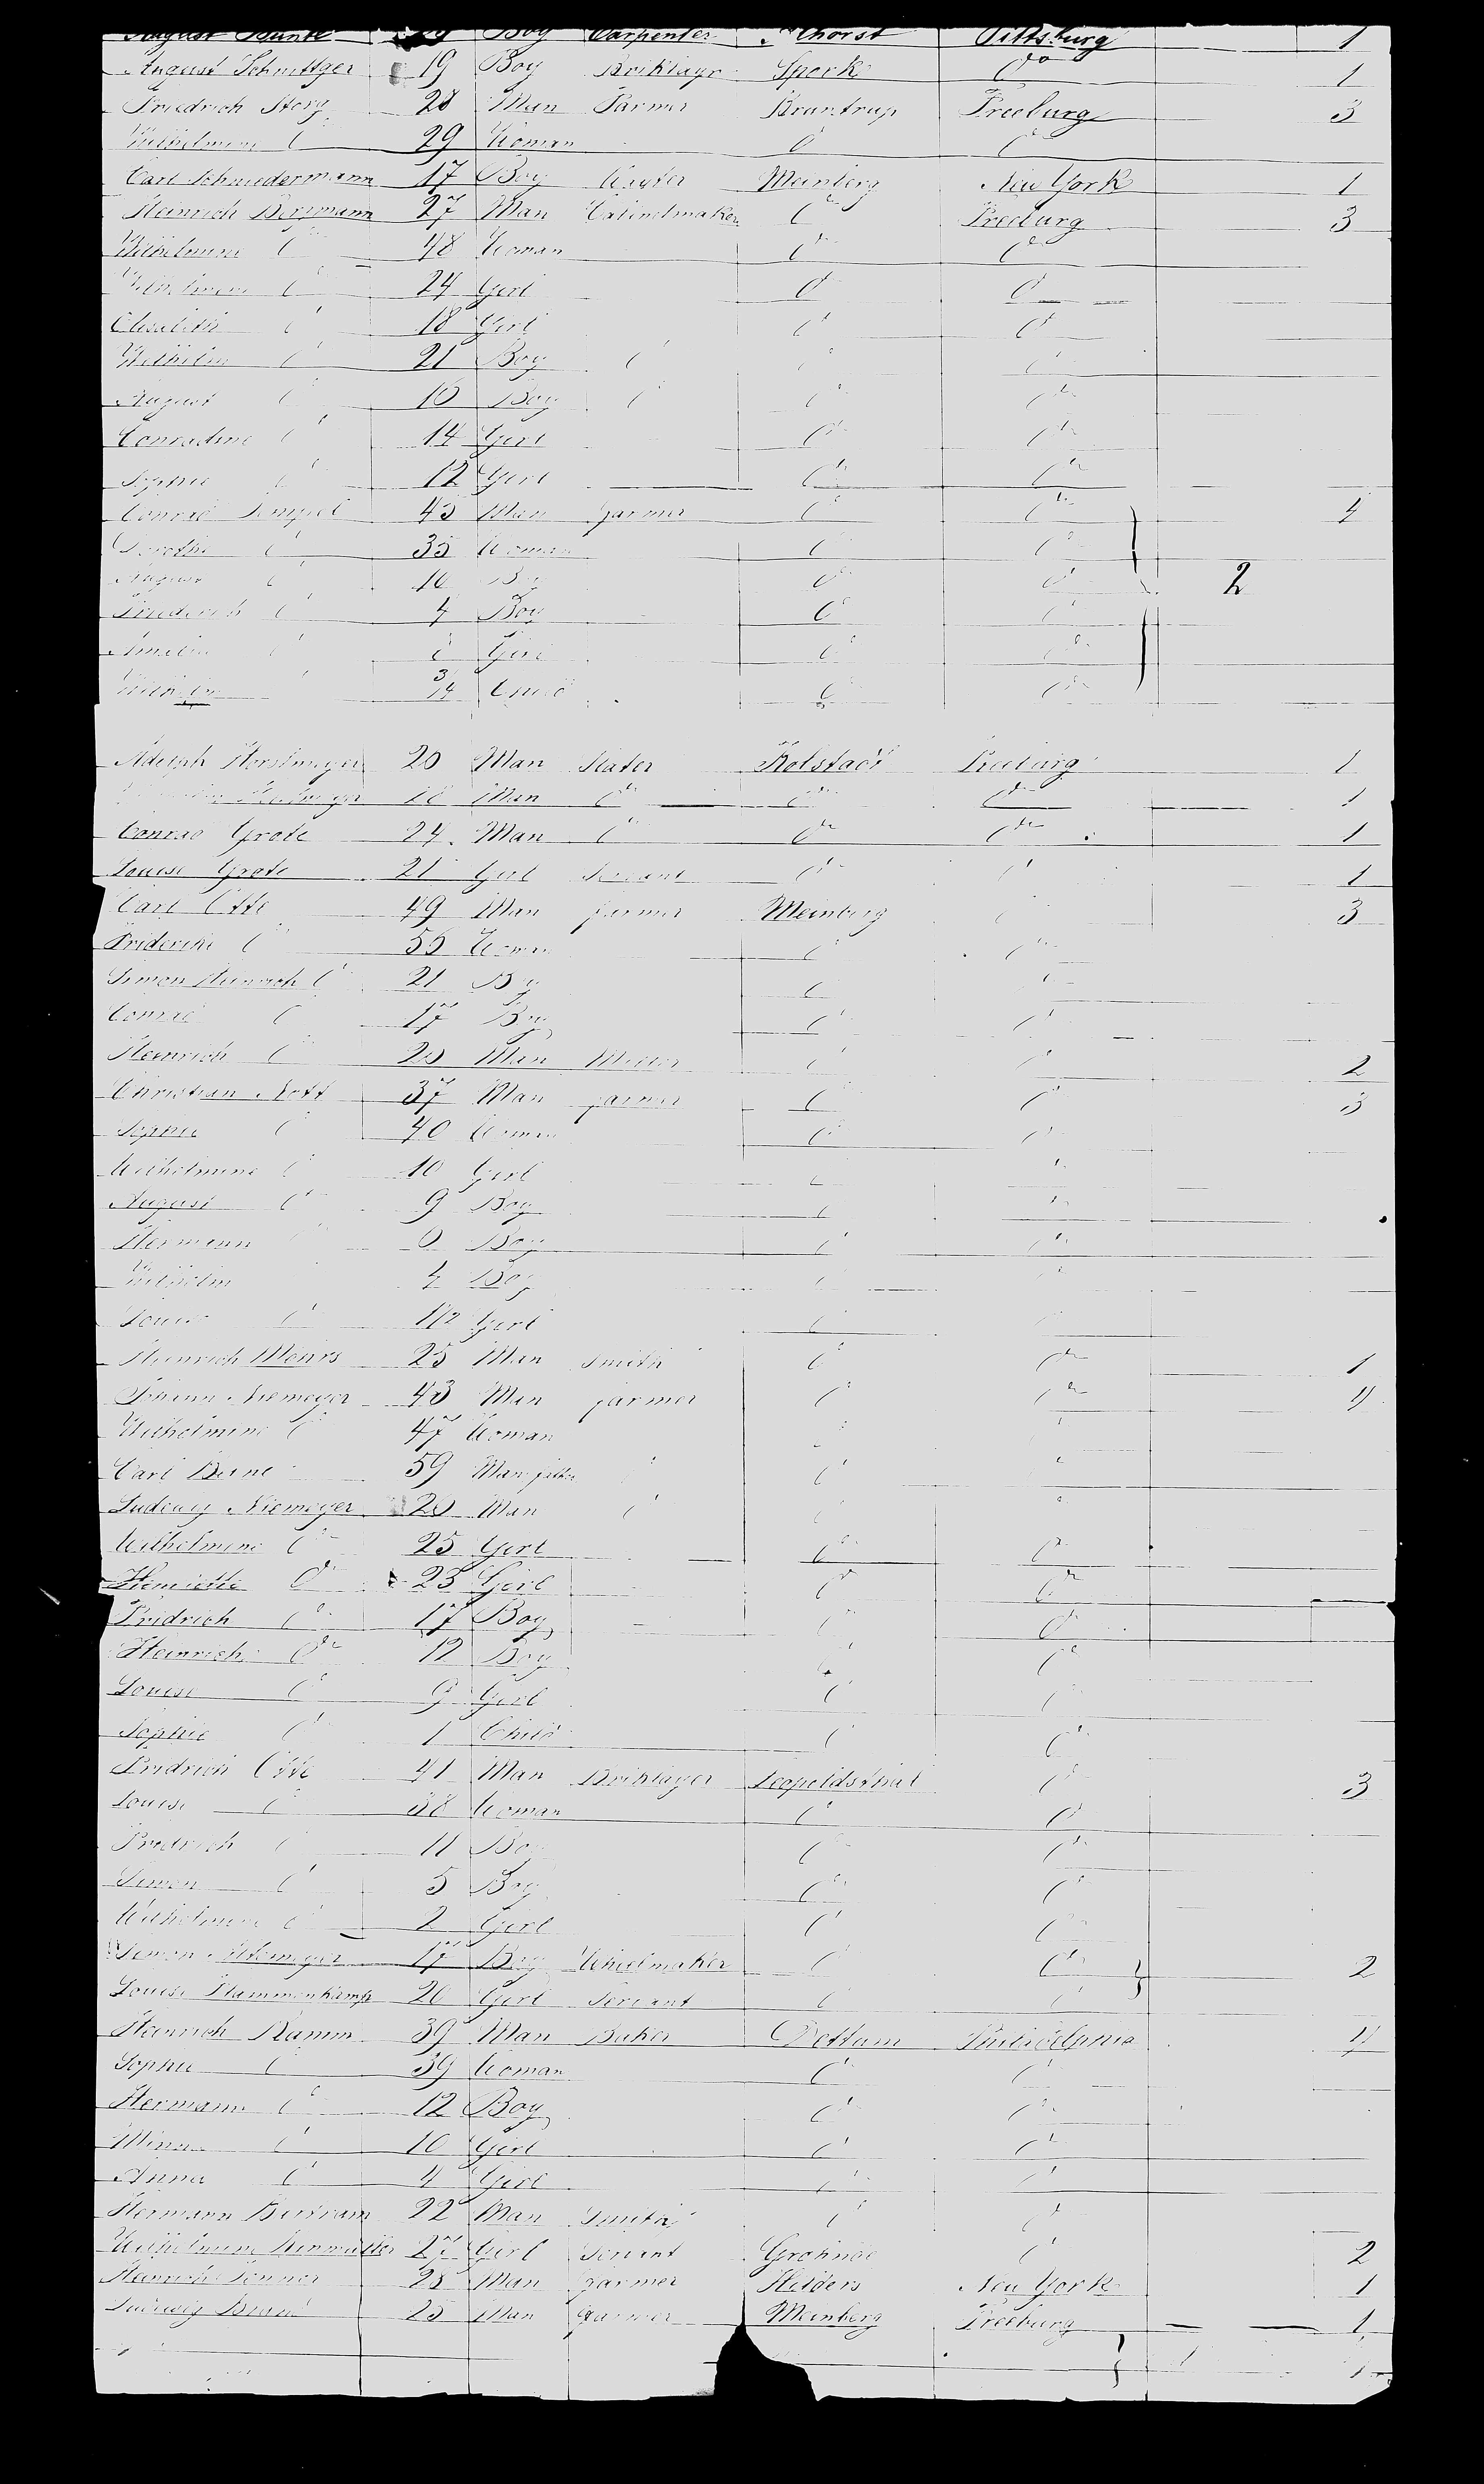 August Bunte 19 Boy Carpenter Ahorst Pittsburg 1
August Schnittger 19 Boy Briklayr Spork do 1
Friedrich Storg 28 Man Farmer Brantrup Freeburg 3
Wilhelmine do 29 Woman do do
Carl Schniedermann 17 Boy Meinberg New York 1
Heinrich Bergmann 27 Man Cabinetmaker do Freeburg 3
Wilhelmine do 48 Woman do do
Wilhelmine do 24 Girl do do
Elisabeth do 18 Girl do do
Wilhelm do 21 Boy do do do
August do 16 Boy do do do
Conradine do 14 Girl do do
Sophie do 12 Girl do do
Conrad 45 Man farmer do do 4
Dorothe do 35 Woman do do
August do 10 Boy do do 2
Friederich do 4 Boy do do
Amelia do Girl do do
3/4 Child do do
Adolph Horstmeyer 20 Man Slater Kolstadt Freeburg 1
18 Man do do do 1
Conrad Grote 24 Man do do do 1
Louise Grote 21 Girl Servant do do 1
Carl Otte 49 Man farmer Meinberg do 3
Friderike do 56 Woman do do
Simon Heinrich do 21 Boy do do
Conrad do 17 Boy do do
Heinrich do 20 Man do do 2
Christian Nott 37 Man farmer do do 3
Sophie do 40 Woman do do
Wilhelmine do 10 Girl do do
August do 9 Boy do do
Hermann do 6 Boy do do
Wilhelm 4 Boy do do
Louise do 1 1/2 Girl do
Heinrich Meiers 25 Man Smith do do 1
Johann Niemeyer 43 Man farmer do do 4
Wilhelmine do 47 Woman do do
Carl Beine 59 Man father do do do
Ludewig Niemeyer 20 Man do do do
Wilhelmine do 25 Girl do do
Henriette do 23 Girl do do
Fridrich do 17 Boy do do
Heinrich do 12 Boy do do
Louise do 9 Girl do do
Sophie do 1 Child do do
Fridrich Otte 41 Man Briklayer Leopoldsthal do 3
Louise do 38 Woman do do
Fridrich do 11 Boy do do
Simon do 5 Boy do do
Wilhelmine do 2 Girl do do
Simon 17 Boy Wheelmaker do do 2
Louise Flammenkamp 20 Girl Servant do do
Heinrich Ramm 39 Man Baker Dettum Philidelphia 4
Sophie do 39 Woman do do
Hermann do 12 Boy do do
Minna do 10 Girl do do
Anna do 4 Girl do do
Hermann Bertram 22 Man Smith do do
Wilhelmine 27 Girl Servant Grohnde do 2
Heinrich 28 Man farmer Heiders New York 1
Ludewig Brand 25 Man farmer Meinberg Freeburg 1